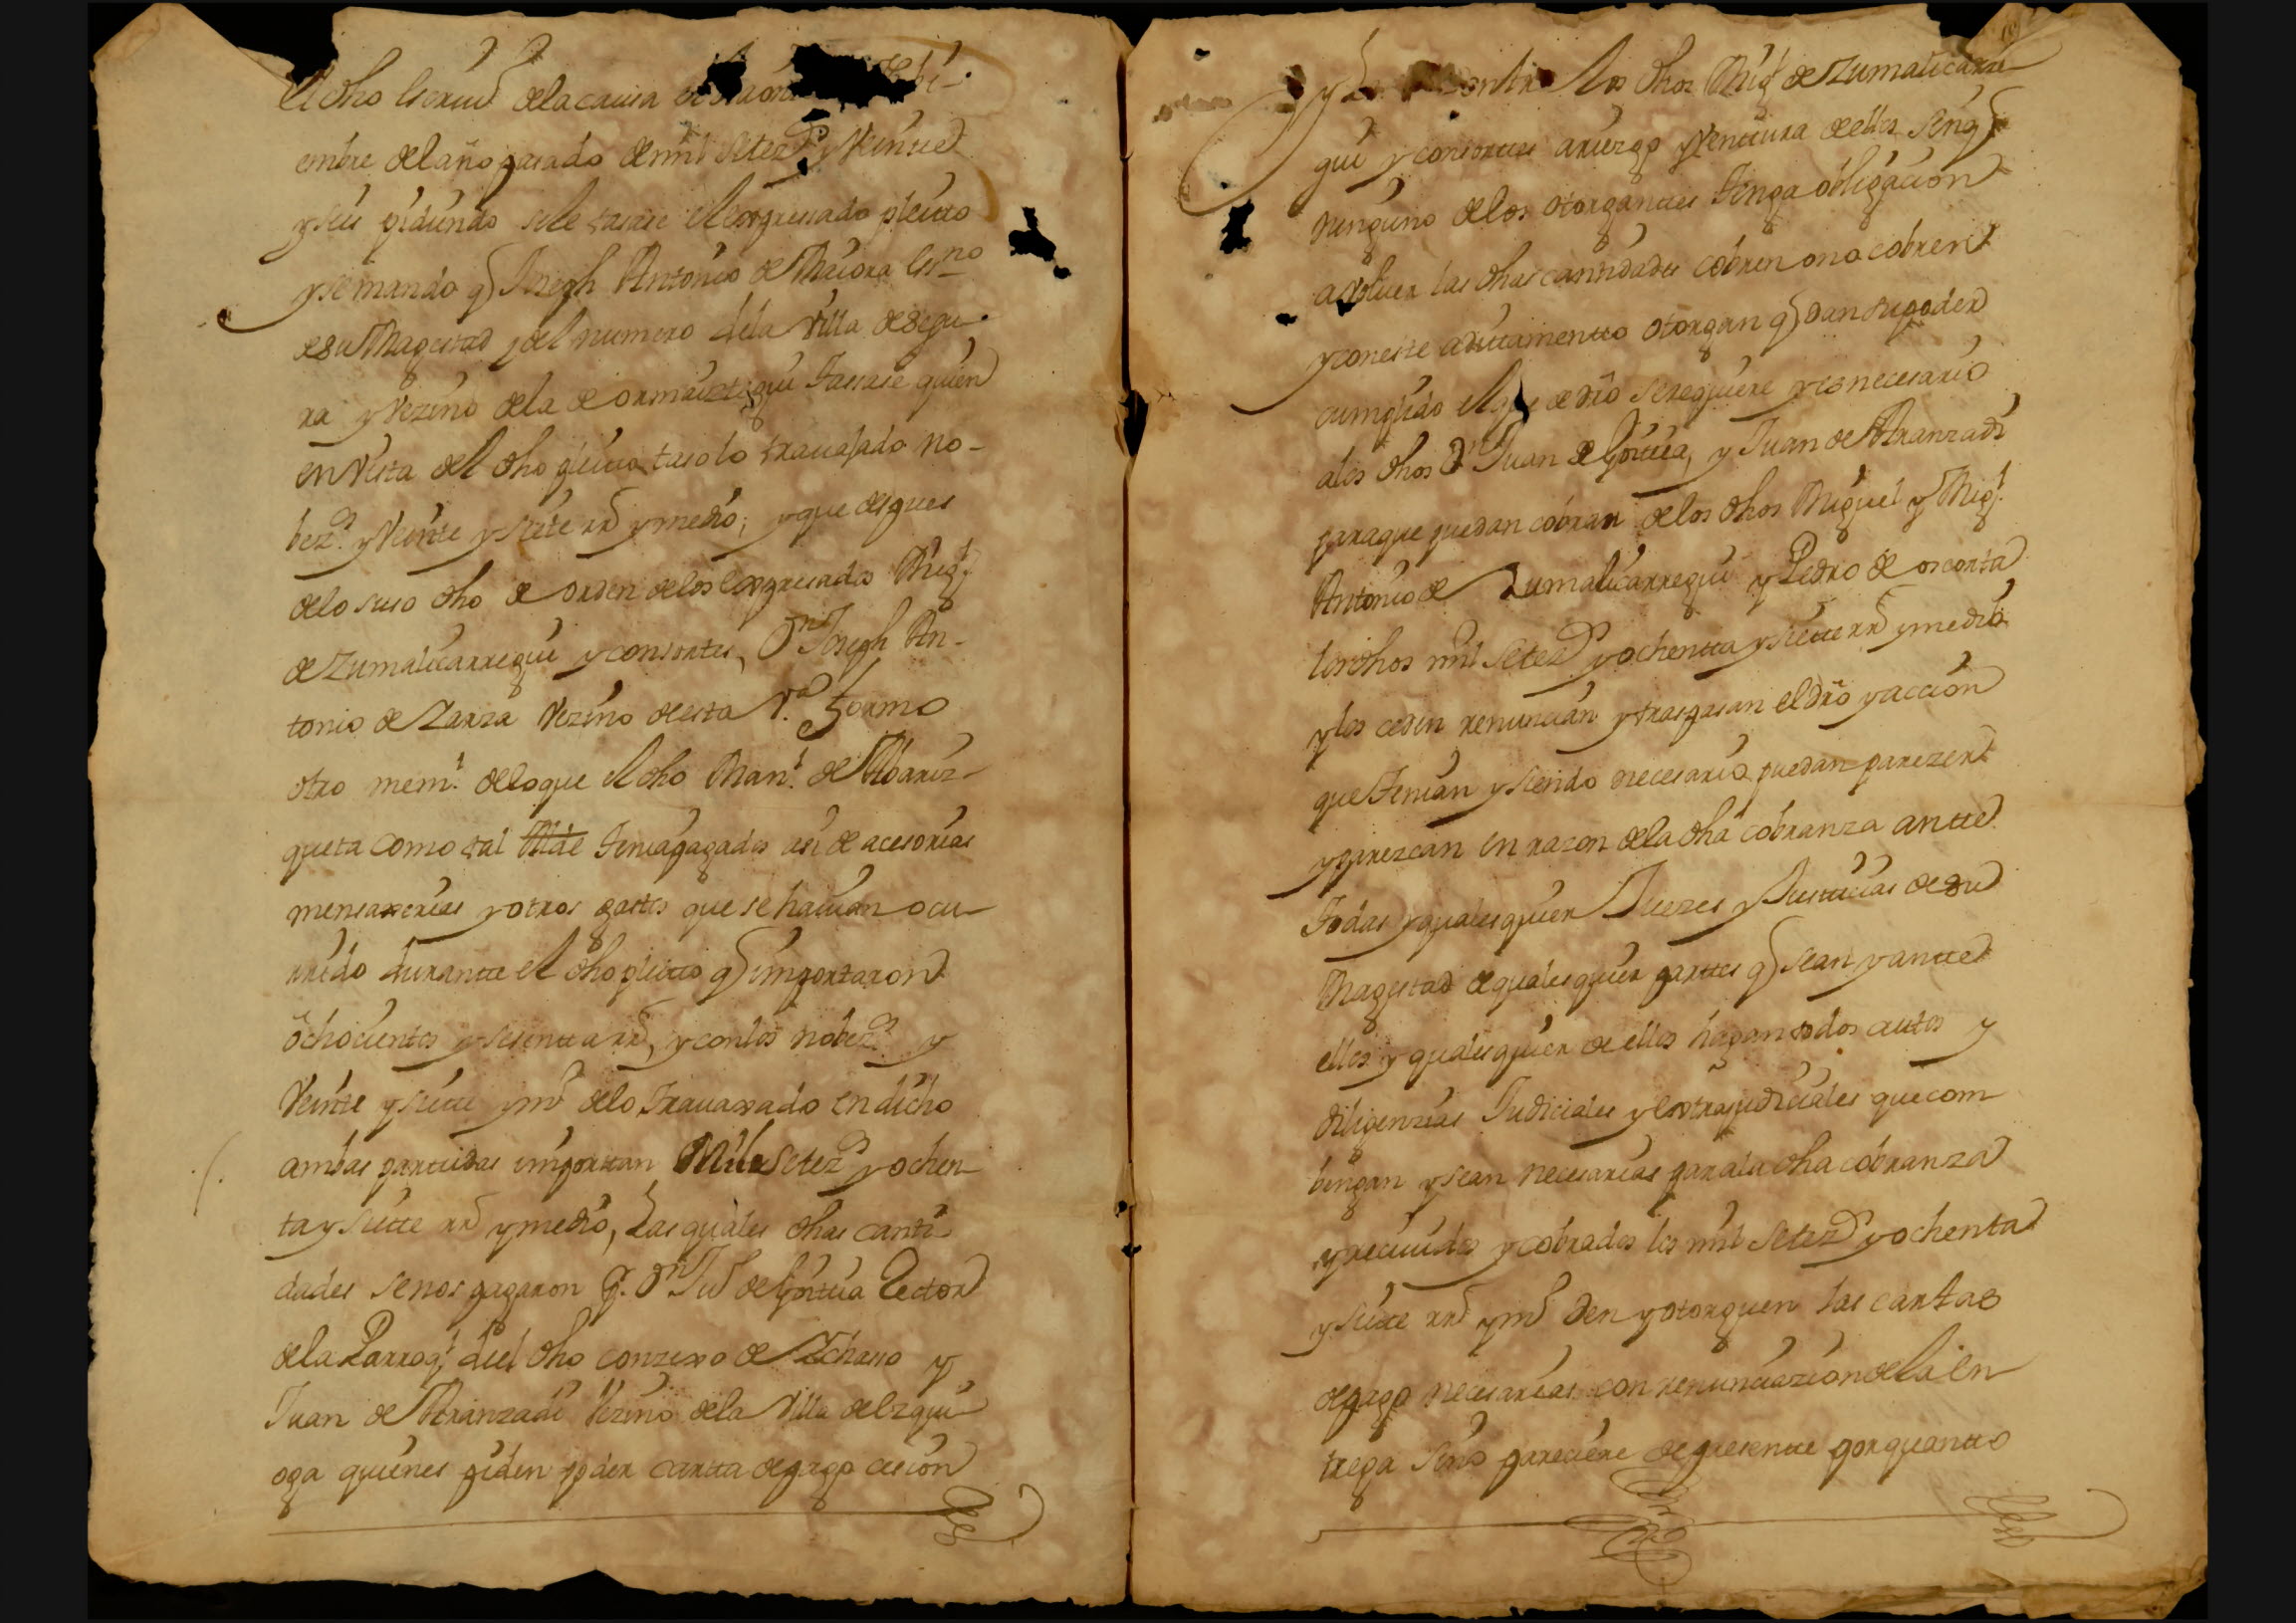 el dho escriu^o dela causa
embre del año pasado de mil setez^s y Veinte
y seis pidiendo se le tasase el expresado pleitto
y se mando q Joseph Antonio de Maiora es^no
de su Magestad y del numero dela Villa de Segu-
ra y Vezino dela de ormaiztegui tassase quien
en Vista del dho pleitto taso lo trauajado no-
bez^s y Veinte y siete rr^s y medio; y que despues
delo suso dho de orden delos expresados Mig^l
de Zumalicarregui y consortes, D^n Joseph An-
tonio de Zarza Vezino desta V^a formo
otro mem^l delo que el dho Man^l de Albariz-
queta como tal Alde tenia pagados asi de acesorias
mensaxerias y otros gastos que se hauian ocu-
rrido durante el dho pleitto q importaron
ochocientos y sesentta rr^s, y con los nobez^s y
Veinte y siette y m^o delo trauaxado en dicho
ambas parttidas importtan Mil Setez^s y ochen
ta y siette rr^s y medio, Las quales dhas canti-
dades se nos pagaron p. D^n Ju^o de Gorttia Rector
dela Parroq^l del dho conzexo de Ychaso y
Juan de Aranzadi Vezino dela Villa de Ezqui
oga quienes piden poder cartta de pago cesion
y contra los dhos Mig^l de Zumalicarre
gui y consortes a riezgo y Venttura de ellos sin q
ninguno delos otorganttes tenga obligacion
a voluer las dhas cantidades cobren o no cobren
y con este aditamentto otorgan q dan su poder
cumplido el que de dro se requiere y es necesario
alos dhos D^n Juan de Gorttia, y Juan de Aranzadi
para que puedan cobrar de los dhos Miguel y Mig^l
Antonio de Zumalicarregui y Pedro de oscorta
los dhos mil Setez^s y ochentta y siette rr^s y medio
y les ceden renuncian y traspasan el dro y accion
que tenian y siendo necesario puedan parezer
y parezcan en razon dela dha cobranza antte
todas y qualesquier Juezes y Justticias de su
Magestad de qualesquier parttes q sean y antte
ellos y qualesquier de ellos hagan todos autos y
diligenzias Judiciales y extrajudiciales que com
bengan y sean necesarias para la dha cobranza
y reciuidos y cobrados los mil Setez^s y ochenta
y siette rr^s y m^o den y otorguen las cartas
de pago necesarias con renunciazion dela en
trega sino pareciere de presentte por quantto